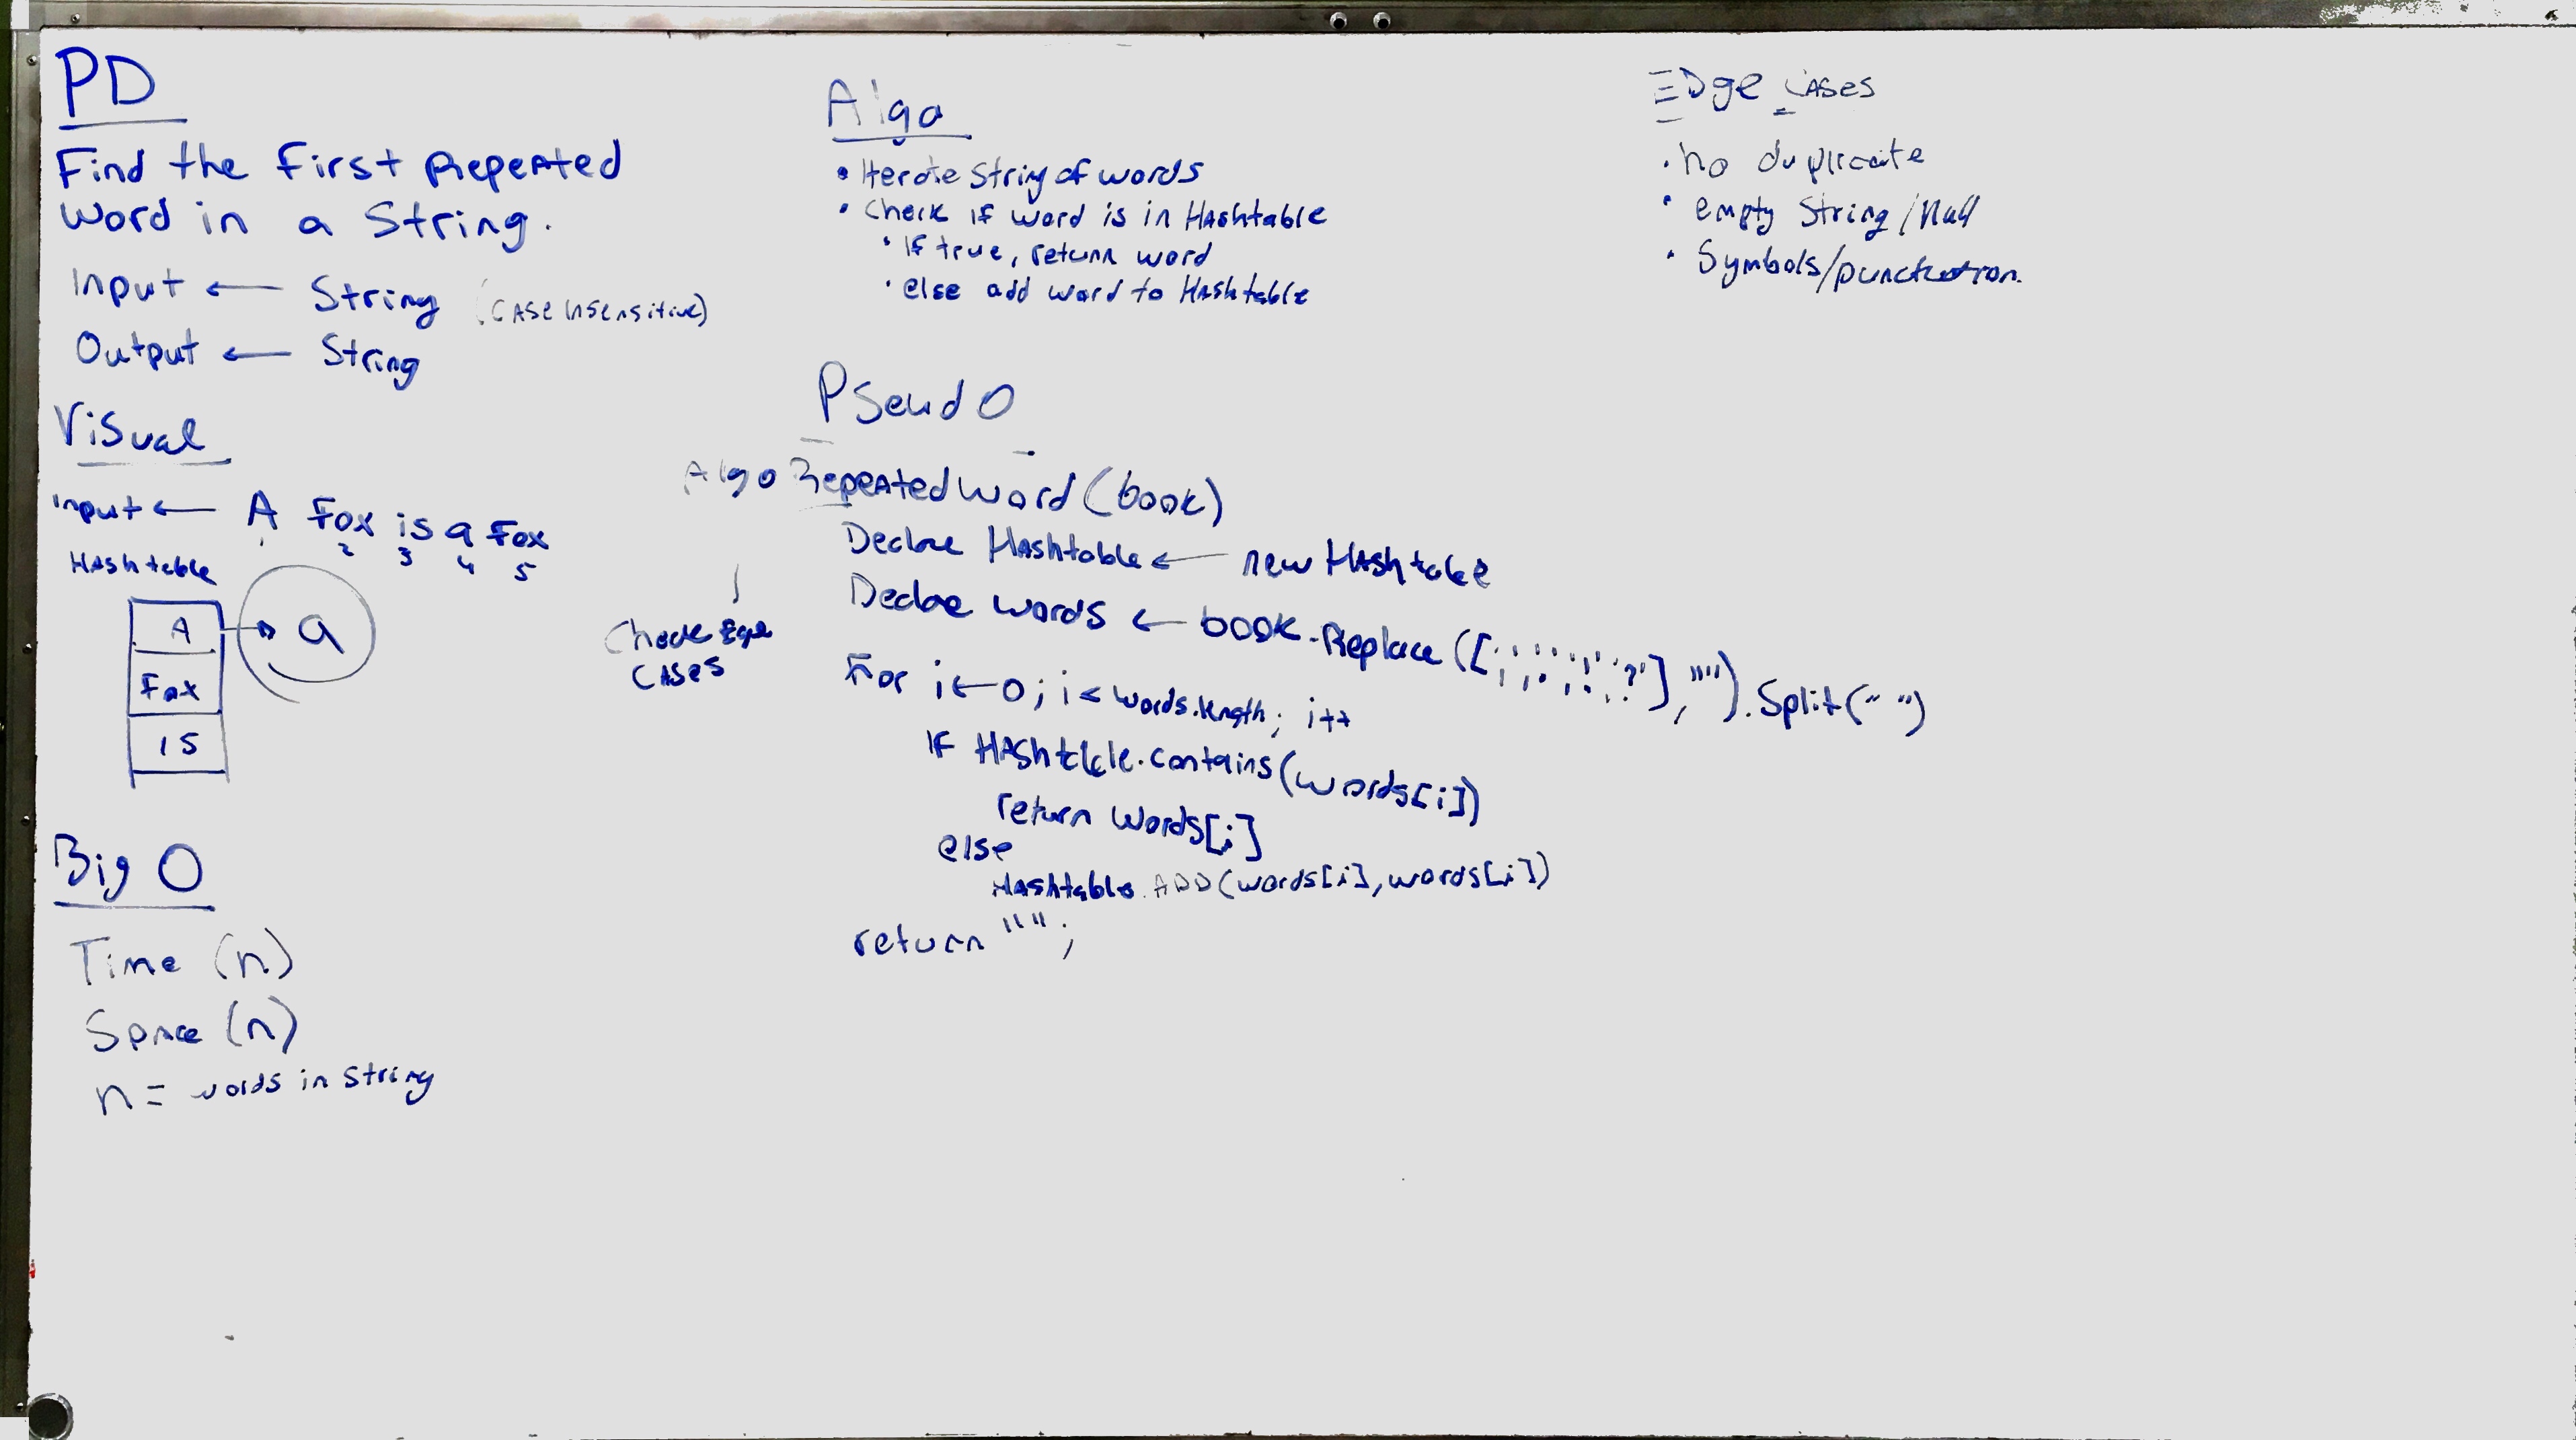 PD
Find the First Repeated
Word in a String.
Input ← String (CASE INSensitive)
Output ← String
Visual
Input ← A Fox is a Fox
2 3 4 5
HAShtable
A → a
Fox
is
Big O
Time (n)
Space (n)
n = words in string
Algo
• Iterate String of words
• Check if word is in Hashtable
• If true, return word
• else add word to Hashtable
Pseudo
Algo RepeatedWord (book)
Declare Hashtable ← new Hashtable
Check Edge
CASES
Declare words ← book.Replace ([',', '.', ';', '!', '?'], "").Split(" ")
For i ← 0; i < words.length; i++
If Hashtable.contains(words[i])
return words[i]
else
Hashtable.ADD(words[i], words[i])
return "";
EDge CASES
• no duplicate
• empty String/Null
• Symbols/punctuation.